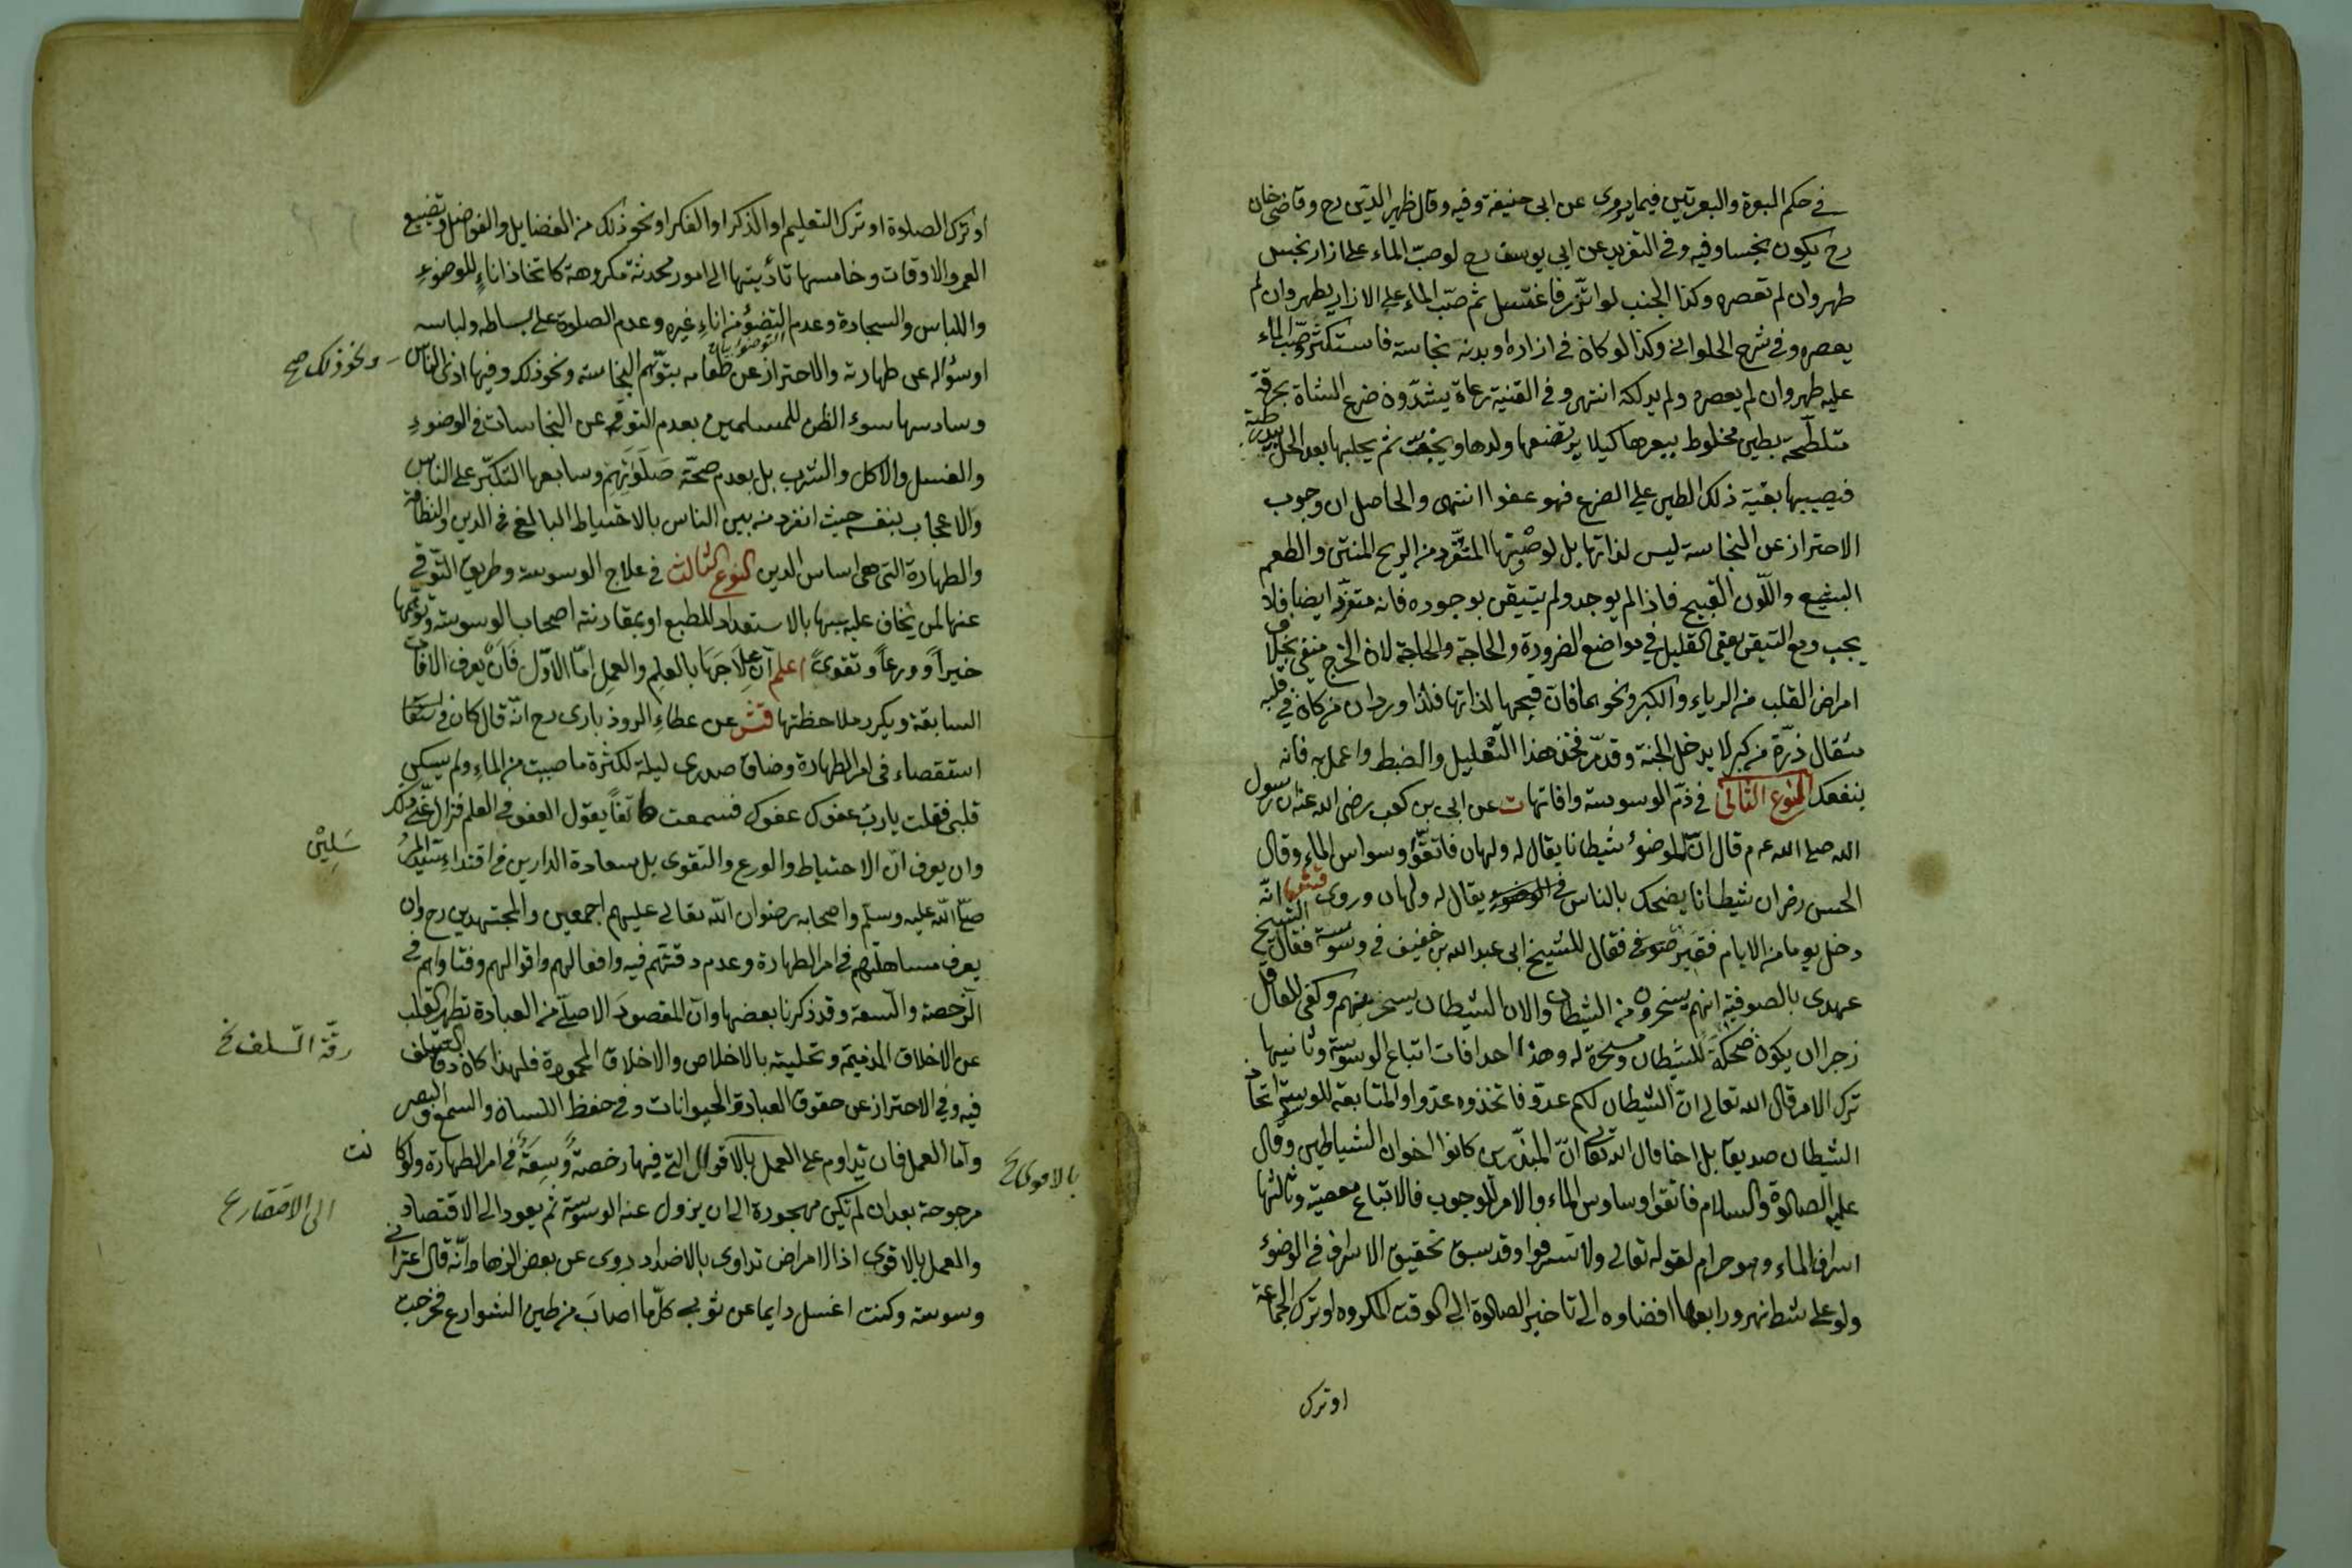 في حكم البعرة والبعرتين فيما يروى عن ابى حنيفة وفيه وقال ظهير الدين رح وقاضى خان
رح يكون نجسا وفيه وفى التفريد عن ابى يوسف رح لو صبّ الماء على ازار نجس
طهر وان لم تعصره وكذا الجنب لو اتّزر فاغتسل ثم صبّ الماء على الازار يطهر وان لم
يعصره وفى شرح الحلوانى وكذا لو كان فى ازاره او بدنه نجاسة فاستكثر صبّ الماء
عليه طهر وان لم يعصره ولم يدلكه انتهى وفى القنية رعاة يشدّون ضرع الشاة بخرقة
متلطّخة بطين مخلوط ببعرها كيلا يرتضعها ولدها ويجفّ ثم يحلبها بعد الحل بيد رطبة
فيصيبها بقية ذلك الطين على الضرع فهو عفو انتهى والحاصل ان وجوب
الاحتراز عن النجاسة ليس لذاتها بل لوصفها المتقذر من الريح المنتن والطعم
البشيع واللّون القبيح فاذا لم يوجد ولم يتيقن بوجوده فانه متعذر ايضا فلا
يجب ومع التيقن يعفى القليل فى مواضع الضرورة والحاجة لان الحرج منفى بخلاف
امراض القلب من الرياء والكبر ونحوهما فان قبحها لذاتها فلذا ورد ان من كان فى قلبه
مثقال ذرّة من كبر لا يدخل الجنة وقدمرّ فخذ هذا التعليل والضبط واعمل به فانه
ينفعك النوع الثانى فى ذمّ الوسوسة وافاتها ت عن ابى بن كعب رضى الله عنه ان رسول
الله صلى الله عم قال انّ للوضوء شيطانا يقال له ولهان فاتقّوا وسواس الماء وقال
الحسن رض ان شيطانا يضحك بالناس فى الوضوء يقال له ولهان وروى انّه
دخل يوما من الايام فقير صوفى فقال للشيخ ابى عبد الله بن خفيف فى وسوسة فقال الشيخ
عهدى بالصوفية انهم يسخرون من الشيطان والان الشيطان يسخر منهم وكفى للعاقل
زجرا ان يكون ضحكة للشيطان ومسخرة له وهذا احد افات اتباع الوسوسة وثانيها
ترك الامر قال الله تعالى انّ الشيطان لكم عدوّ فاتخذوه عدوا والمتابعة للوسوسة اتخاذ
الشيطان صديقا بل اخا قال الله تعالى انّ المبذّرين كانوا اخوان الشياطين وقال
عليه الصلوة والسلام فاتقوا وساوس الماء والامر للوجوب فالاتباع معصية وثالثها
اسراف الماء وهو حرام لقوله تعالى ولا تسرفوا وقد سبق تحقيق الاسراف فى الوضوء
ولو على شط نهر ورابعها افضاوه الى تاخير الصلوة الى الوقت المكروه او ترك الجماعة
او ترك
او ترك الصلوة او ترك التعليم او الذكر او الفكر او نحو ذلك من الفضايل والفواضل وتضييع
العمر والاوقات وخامسها تأديتها الى امور محدثة مكروهة كاتخاذ اناءٍ للوضوءِ
واللباس والسجادة وعدم التوضؤ من اناءِ غيره وعدم الصلوة على بساطه ولباسه
او سؤاله عن طهارته والاحتراز عن طعامه بتوّهم النجاسة ونحو ذلك وفيها اذى الناس
ونحو ذلك صح
وسادسها سوء الظن للمسلمين بعدم التوقى عن النجاسات فى الوضوءِ
والغسل والاكل والشرب بل بعدم صحّة صَلَوٰتِهِم وسابعها التكبّر على الناس
والاعجاب بنفسه حيث انفرد منه بين الناس بالاحتياط البالغ فى الدين والنظافة
والطهارة التى هى اساس الدين النوع الثالث فى علاج الوسوسة وطريق التوّقى
عنها لمن يخاف عليه منها بالاستعداد للطبع او بمقارنة اصحاب الوسوسة وتوهّمها
خيراً وورعاً وتقوىً اعلم انّ عِلاَجَهَا بالعلم والعمل امّا الاوّل فَاَنْ يعرف الافات
السابقة ويكرر ملاحظتها قش عن عطاءِ الروذبارى رح انّه قال كان فىّ
استقصاء فى امر الطهارة وضاق صدرى ليلة لكثرة ما صببت من الماءِ ولم يسكن
قلبى فقلت يا ربّ عفوك عفوك فسمعت هاتفاً يقول العفو فى العلم فزال عنّى ذلك
وان يعرف انّ الاحتياط والورع والتقوى بل سعادة الدارين فى اقتداءِ سيّد المر
سَلِيْنَ
صلّى الله عليه وسلّم واصحابه رضوان الله تعالى عليهم اجمعين والمجتهدين رح وان
يعرف مساهلتهم فى امر الطهارة وعدم دقتهم فيه وافعالهم واقوالهم وفتاواهم فى
الرّخصة والسعة وقد ذكرنا بعضها وانّ المقصودَ الاصلّى من العبادة تطهر القلب
عن الاخلاق الذميمة وتحليته بالاخلاص والاخلاق المحمودة فلهذا كان دقة السلف
رقّة السّلف خ
فيه وفى الاحتراز عن حقوق العباد والحيوانات وفى حفظ اللسان والسمع والبصر
وامّا العمل فان يداوم على العمل بالاقوال التى فيها رخصةٌ وَسِعَةٌ فى امر الطهارة ولو كا
نت
بالاقوى خ
مرجوحة بعد ان لم تكن مهجورة الى ان يزول عنه الوسوسة ثم يعود الى الاقتصاد
والعمل بالاقوى اذ الامراض تداوى بالاضداد روى عن بعض الزهاد انّه قال اعترانى
وسوسة وكنت اغسل دايما عن ثوبى كلّما اصابَ من طين الشوارع فخرجت